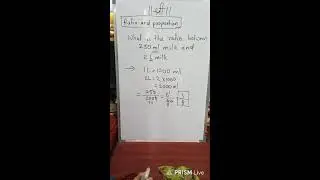 || श्री ||
Ratio and proportion
What is the ratio between
250 ml milk and
2 L milk
→ 1L = 1000 ml
2L = 2 x 1000
= 2000 ml
PRISM Live